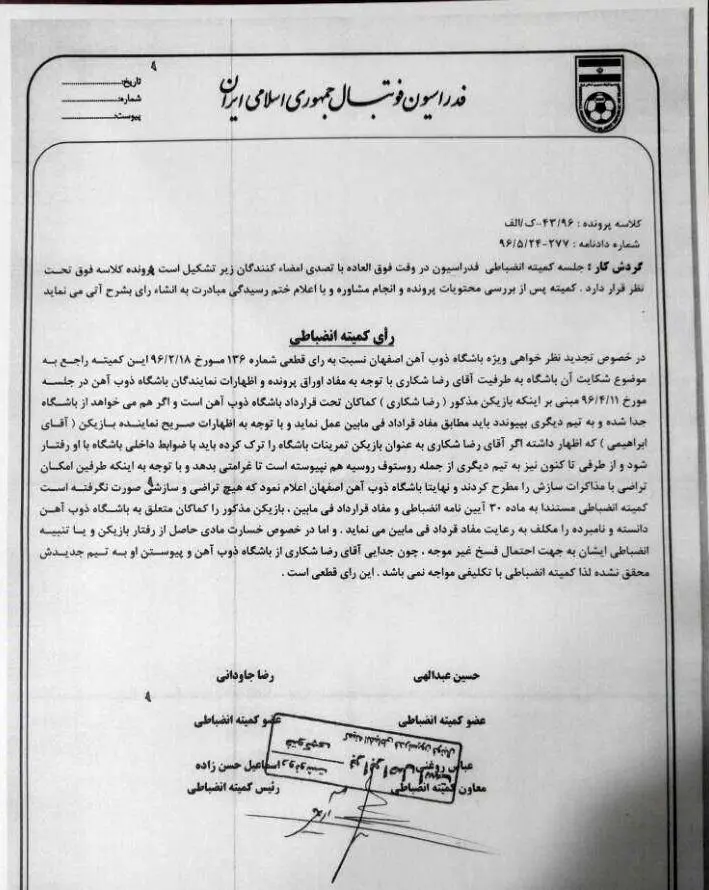 فدراسیون فوتبال جمهوری اسلامی ایران
تاریخ:
شماره:
پیوست:
کلاسه پرونده : ۴۳/۹۶-ک/الف
شماره دادنامه : ۲۷۷-۹۶/۵/۲۴
گردش کار : جلسه کمیته انضباطی فدراسیون در وقت فوق العاده با تصدی امضاء کنندگان زیر تشکیل است پرونده کلاسه فوق تحت
نظر قرار دارد . کمیته پس از بررسی محتویات پرونده و انجام مشاوره و با اعلام ختم رسیدگی مبادرت به انشاء رای بشرح آتی می نماید
رأی کمیته انضباطی
در خصوص تجدید نظر خواهی ویژه باشگاه ذوب آهن اصفهان نسبت به رای قطعی شماره ۱۳۶ مورخ ۹۶/۲/۱۸ این کمیته راجع به
موضوع شکایت آن باشگاه به طرفیت آقای رضا شکاری با توجه به مفاد اوراق پرونده و اظهارات نمایندگان باشگاه ذوب آهن در جلسه
مورخ ۹۶/۴/۱۱ مبنی بر اینکه بازیکن مذکور ( رضا شکاری ) کماکان تحت قرارداد باشگاه ذوب آهن است و اگر هم می خواهد از باشگاه
جدا شده و به تیم دیگری بپیوندد باید مطابق مفاد قراداد فی مابین عمل نماید و با توجه به اظهارات صریح نماینده بازیکن ( آقای
ابراهیمی ) که اظهار داشته اگر آقای رضا شکاری به عنوان بازیکن تمرینات باشگاه را ترک کرده باید با ضوابط داخلی باشگاه با او رفتار
شود و از طرفی تا کنون نیز به تیم دیگری از جمله روستوف روسیه هم نپیوسته است تا غرامتی بدهد و با توجه به اینکه طرفین امکان
تراضی با مذاکرات سازش را مطرح کردند و نهایتا باشگاه ذوب آهن اصفهان اعلام نمود که هیچ تراضی و سازشی صورت نگرفته است
کمیته انضباطی مستندا به ماده ۳۰ آیین نامه انضباطی و مفاد قرارداد فی مابین ، بازیکن مذکور را کماکان متعلق به باشگاه ذوب آهن
دانسته و نامبرده را مکلف به رعایت مفاد قراد فی مابین می نماید . و اما در خصوص خسارت مادی حاصل از رفتار بازیکن و یا تنبیه
انضباطی ایشان به جهت احتمال فسخ غیر موجه ، چون جدایی آقای رضا شکاری از باشگاه ذوب آهن و پیوستن او به تیم جدیدش
محقق نشده لذا کمیته انضباطی با تکلیفی مواجه نمی باشد . این رای قطعی است .
حسین عبدالهی رضا جاودانی
عضو کمیته انضباطی عضو کمیته انضباطی
عباس روغنی اسماعیل حسن زاده
معاون کمیته انضباطی رئیس کمیته انضباطی